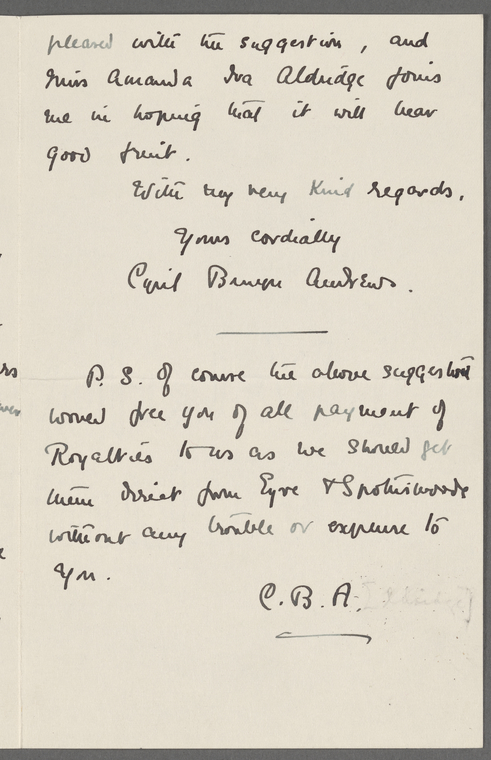 pleased with the suggestion, and
Miss Amanda Ira Aldridge joins
me in hoping that it will bear
good fruit.
With my very kind regards,
Yours cordially
Cyril Bruyn Andrews.
P.S. Of course the above suggestion
would free you of all payment of
Royalties to us as we should get
them direct from Eyre & Spottiswoode
without any trouble or expense to
you.
C.B.A. [Aldridge]